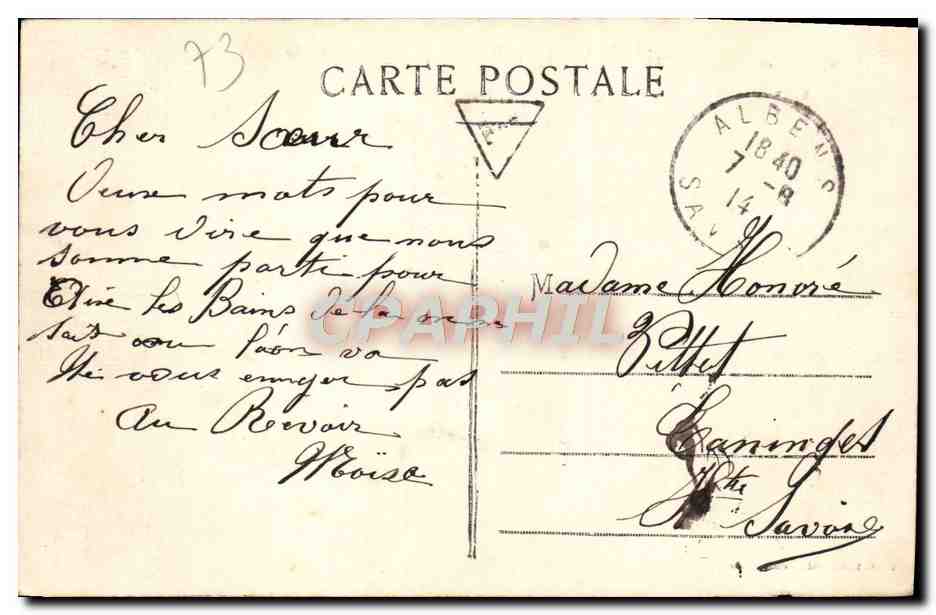 73
CARTE POSTALE
Cher Sœur
Deux mots pour
vous dire que nous
somme parti pour
les Bains de la
sait ou l'on va
Ne vous ennyer pas
Au Revoir
Moïse
ALBENS
18 40
7 -8
14
SAV
Madame Honoré
Pittet
Taninges
Hte Savoie
CPAPHIL